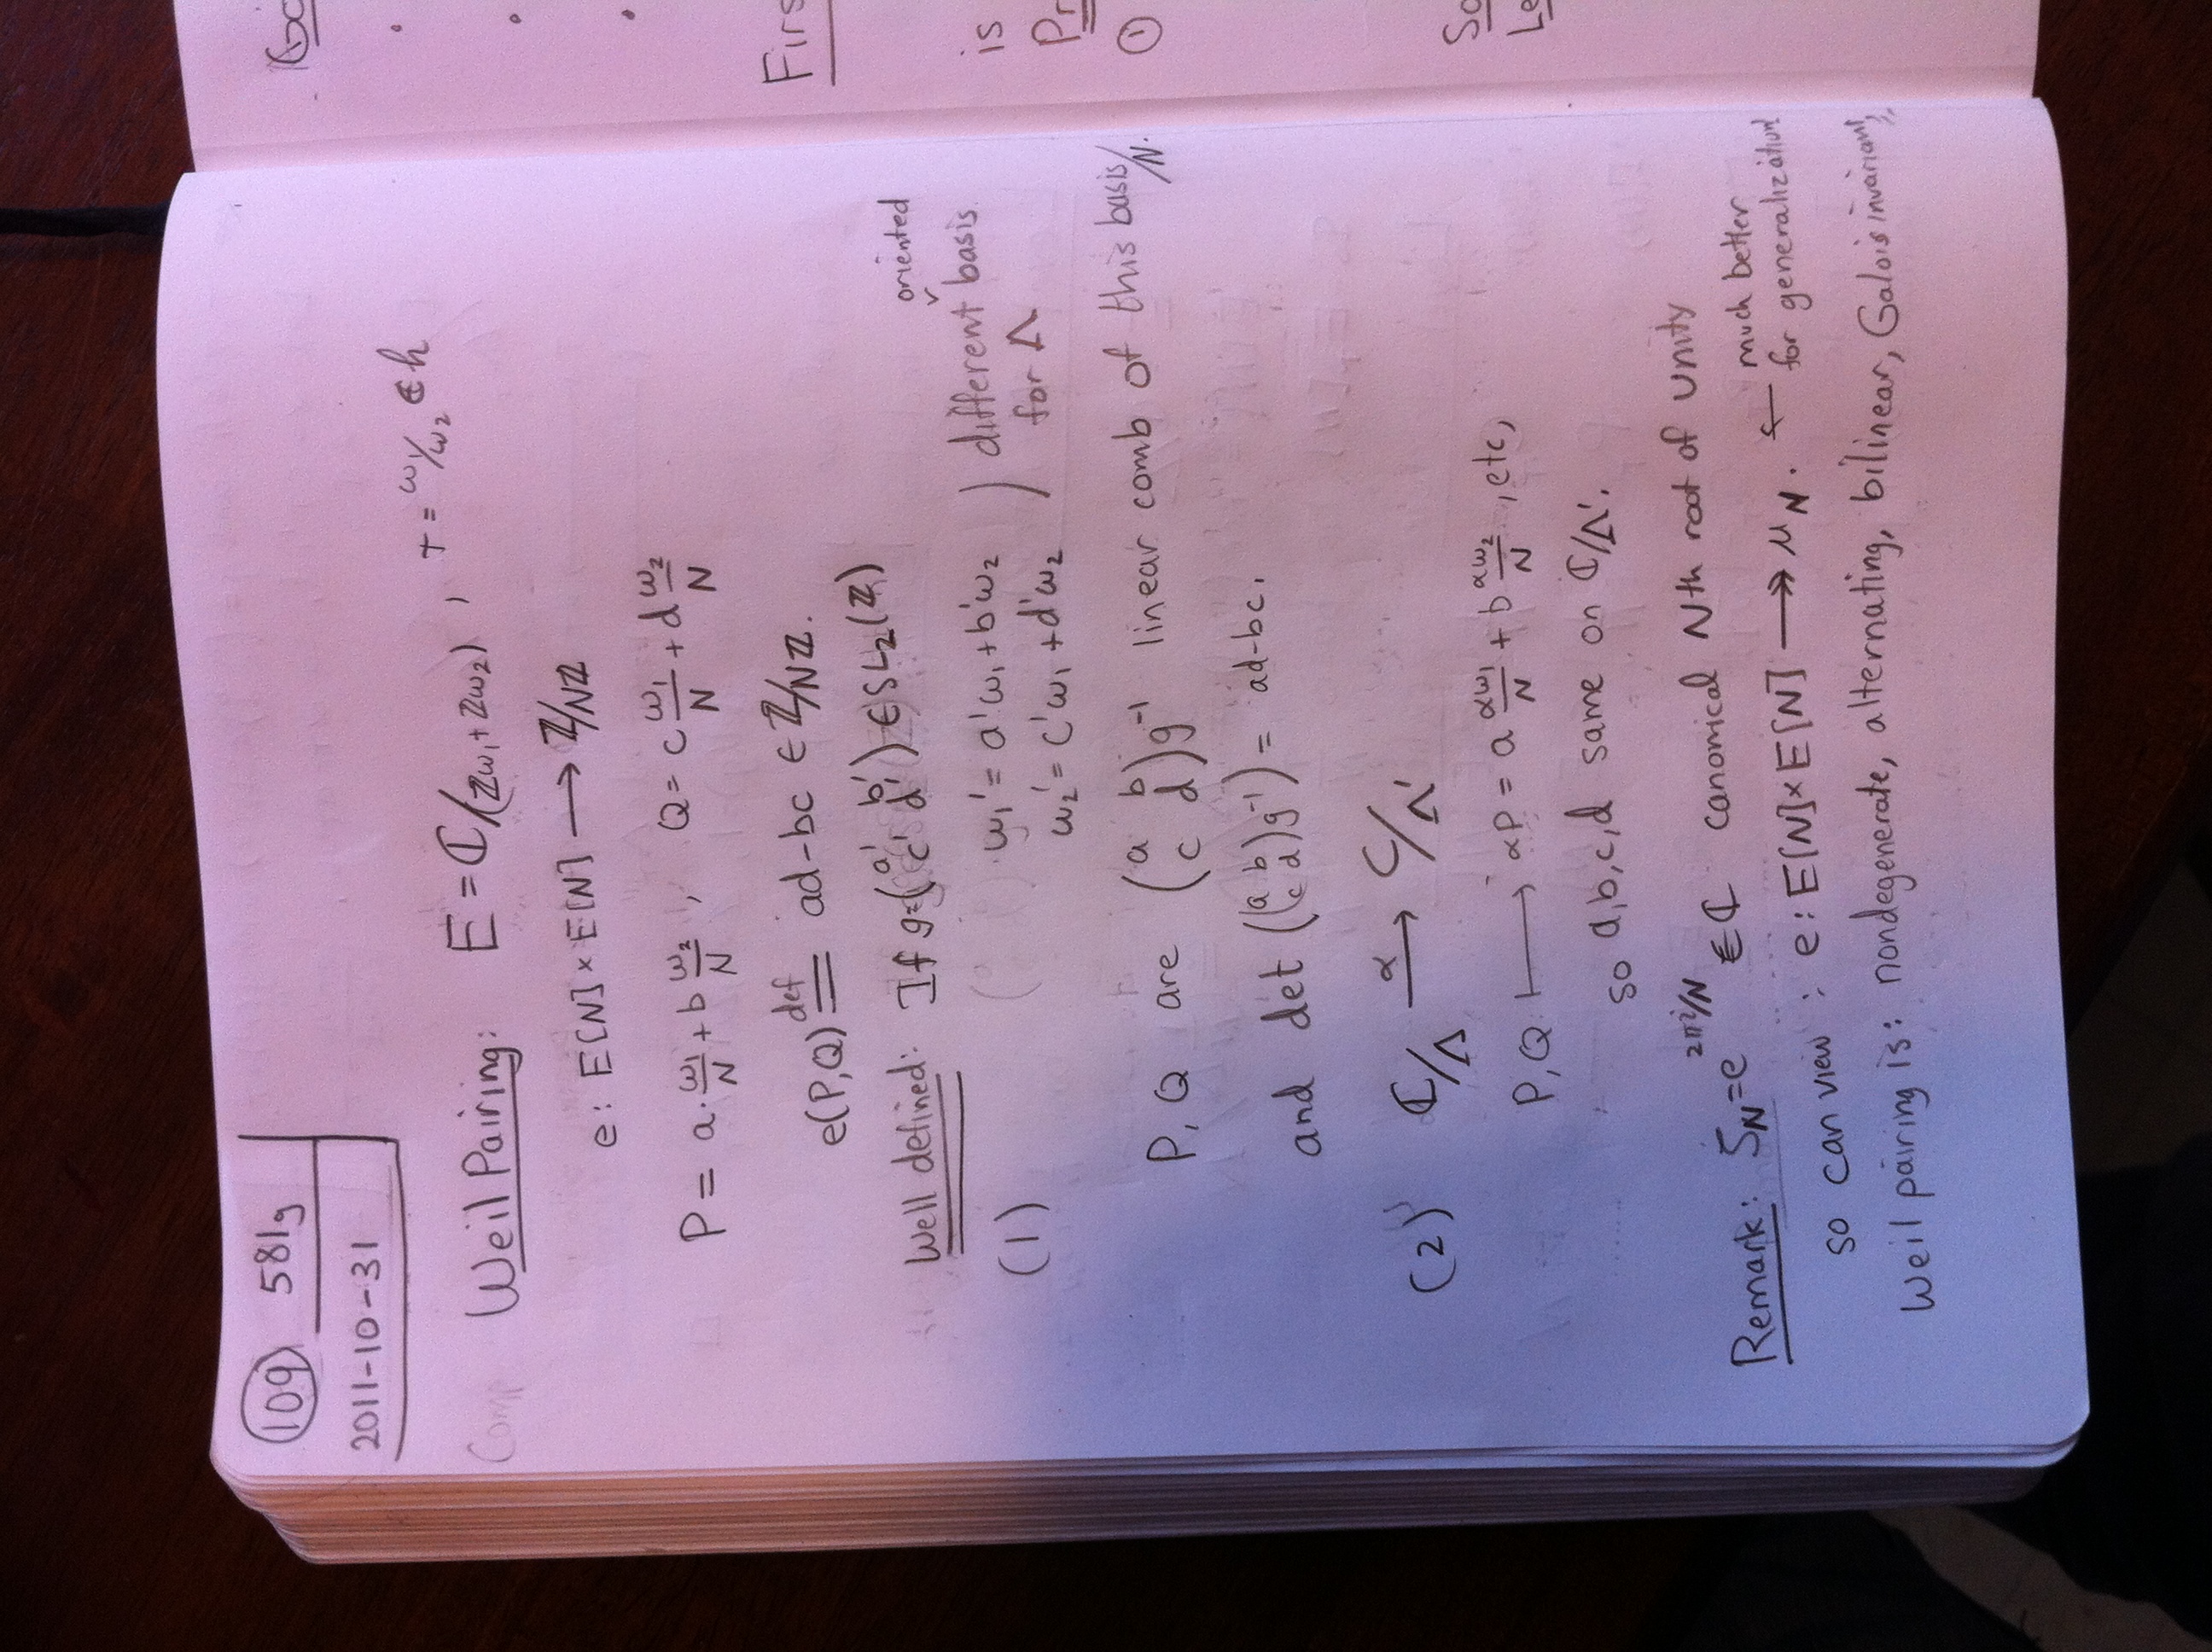 109 581g
2011-10-31
Comp
Weil Pairing: E = ℂ/(ℤω₁+ℤω₂), τ = ω₁/ω₂ ∈ h
e: E[N] × E[N] ⟶ ℤ/Nℤ
P = a·ω₁/N + b ω₂/N, Q = c ω₁/N + d ω₂/N
e(P,Q) =def ad-bc ∈ ℤ/Nℤ.
Well defined: If g=(a' b' ; c' d') ∈ SL₂(ℤ)
(1) ω₁' = a'ω₁+b'ω₂ ) different oriented basis.
ω₂' = c'ω₁+d'ω₂ ) for Λ
P, Q are (a b ; c d)g⁻¹ linear comb of this basis/N.
and det((a b ; c d)g⁻¹) = ad-bc.
(2) ℂ/Λ →α ℂ/Λ'
P, Q ⟼ αP = a αω₁/N + b αω₂/N, etc,
so a,b,c,d same on ℂ/Λ'.
Remark: ζ_N = e^{2πi/N} ∈ ℂ canonical Nth root of unity
so can view: e: E[N]×E[N] ⟶» μ_N. ← much better for generalization!
Weil pairing is: nondegenerate, alternating, bilinear, Galois invariant,
Firs
is
①